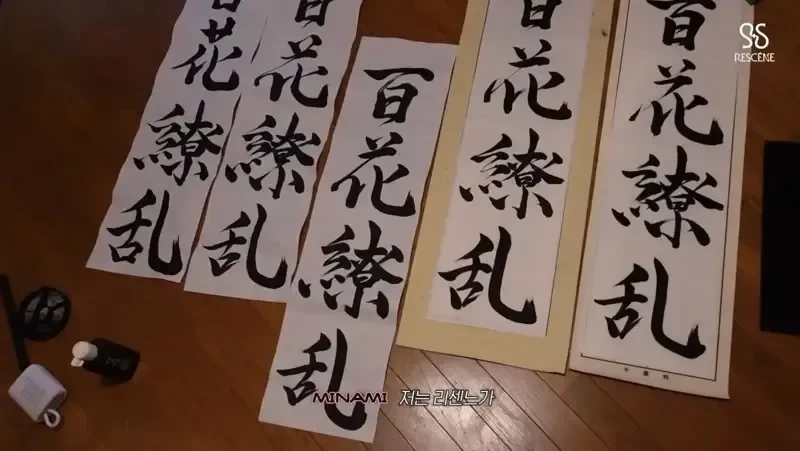 百花繚乱
百花繚乱
百花繚乱
百花繚乱
百花繚乱
RESCENE
MINAMI 저는 리센느가